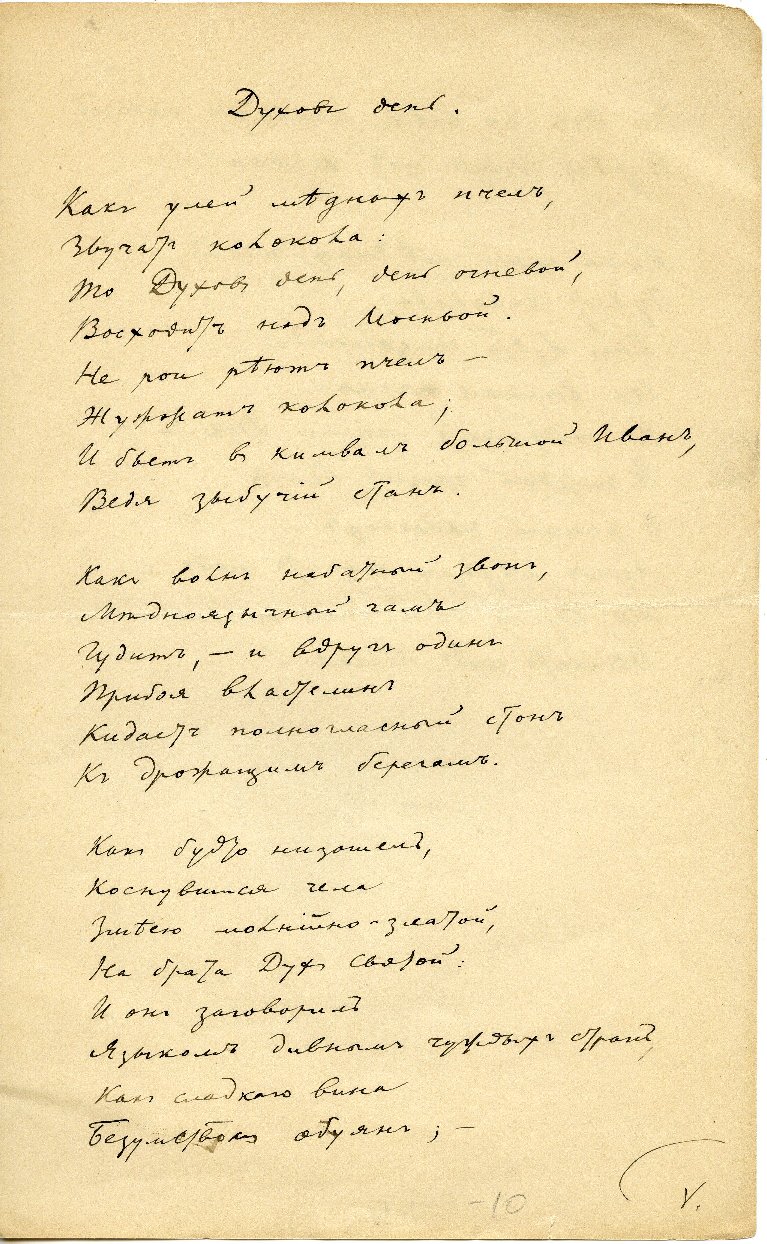 Духовъ день.
Какъ улей мѣдныхъ пчелъ,
Звучатъ колокола:
То Духовъ день, день огневой,
Восходитъ надъ Москвой.
Не рои рѣютъ пчелъ —
Жужжатъ колокола;
И бьетъ въ кимвалъ большой Иванъ,
Ведя зыбучій станъ.
Какъ волнъ набатный звонъ,
Мѣдноязычный гамъ
Гудитъ, — и вдругъ одинъ
Прибоя властелинъ
Кидаетъ полногласный стонъ
Къ дрожащимъ берегамъ.
Какъ будто низошелъ,
Коснувшися чела
Змѣею молнійно-златой,
На брата Духъ Святой:
И онъ заговорилъ
Языкомъ дивнымъ чуждыхъ странъ,
Какъ сладкаго вина
Безумствомъ обуянъ; —
-10
V.